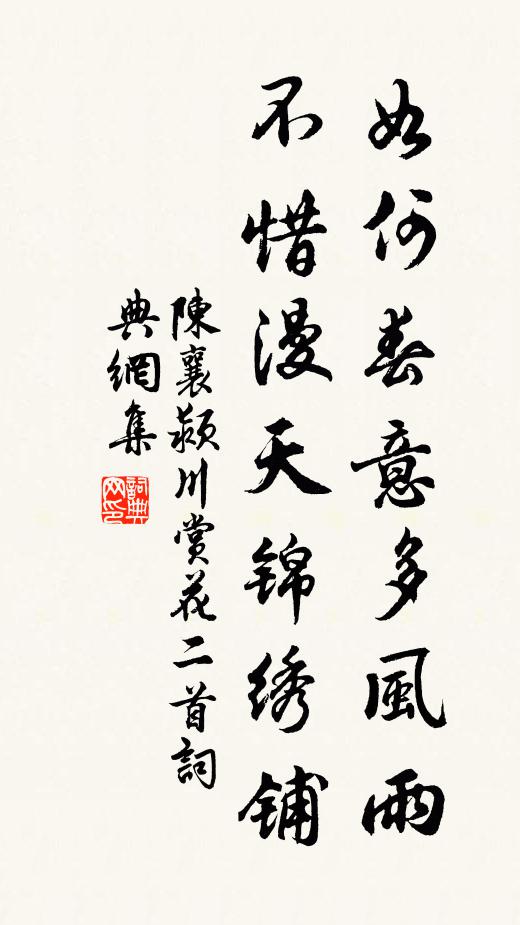 如何春意多風雨
不惜漫天錦绣铺
陳襄潁川賞花二首詞
典網集
詞典网印